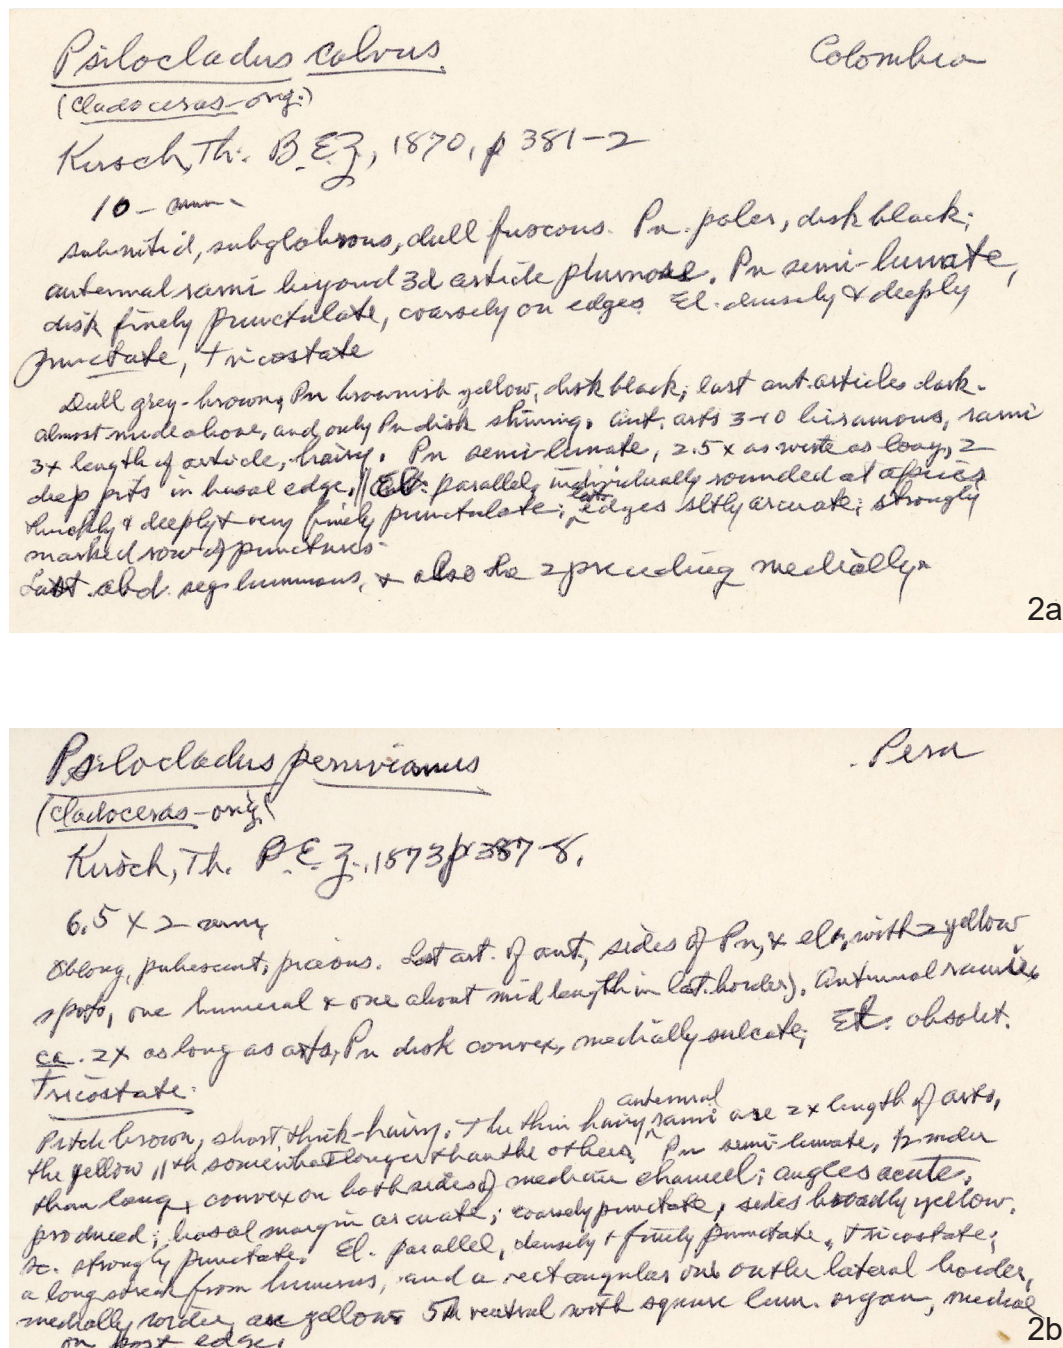 Psilocladus calvus Colombia
(Cladoceras-orig.)
Kirsch, Th. B.E.Z, 1870, p 381-2
10 - mm
subnitid, subglabrous, dull fuscous. Pn. paler, disk black;
antennal rami beyond 3d article plumose. Pn semi-lunate,
disk finely punctulate, coarsely on edges. El. densely & deeply
punctate, tricostate
Dull grey-brown, Pn brownish yellow, disk black; last ant. articles dark.
almost nude above, and only Pn disk shining. Ant. arts 3-10 biramous, rami
3x length of article, hairy. Pn semi-lunate, 2.5 x as wide as long, 2
deep pits in basal edge. || El. parallel, individually rounded at apices
thickly & deeply & very finely punctulate; lat. edges sltly arcuate; strongly
marked row of punctures.
Last abd. seg. luminous, & also the 2 preceding medially.
2a
Psilocladus peruvianus Peru
(Cladoceras-orig.)
Kirsch, Th. B.E.Z., 1873 p 387-8.
6.5 x 2 mm
Oblong, pubescent, piceous. Last art. of ant., sides of Pn, & el., with 2 yellow
spots, one humeral & one about mid length in lat. border). Antennal
ca. 2x as long as arts, Pn disk convex, medially sulcate; El. obsolet.
tricostate.
Pitch brown, short, thick-hairy. The thin hairy antennal rami are 2x length of arts,
the yellow 11th somewhat longer than the others. Pn semi-lunate, wider
than long, convex on both sides of median channel; angles acute,
produced; basal margin arcuate; coarsely punctate, sides broadly yellow.
Sc. strongly punctate. El. parallel, densely & finely punctate, tricostate;
a long streak from humerus, and a rectangular one on the lateral border,
medially wider, are yellow. 5th ventral with square lum. organ, medial
on post edge.
2b